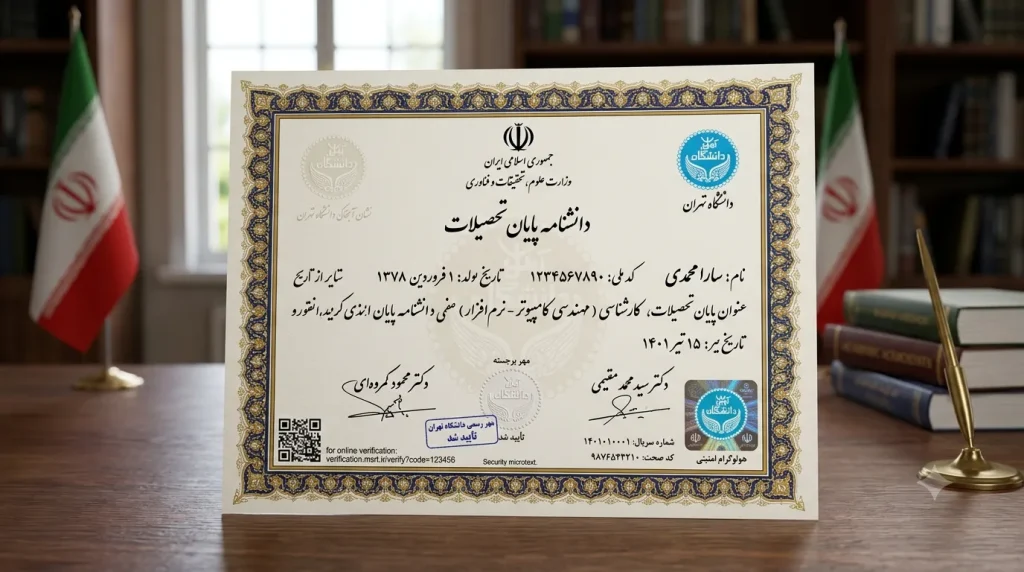 جمهوری اسلامی ایران
وزارت علوم، تحقیقات و فناوری
دانشگاه
دانشگاه تهران
دانشگاه
نشان آبخاکی دانشگاه تهران
دانشنامه پایان تحصیلات
نام: سارا محمدی کد ملی: ۱۲۳۴۵۶۷۸۹۰ تاریخ تولد: ۱ فروردین ۱۳۷۸ شایر از تاریخ
عنوان پایان تحصیلات، کارشناسی (مهندسی کامپیوتر - نرم افزار) صفی دانشنامه پایان
تاریخ یبر: ۱۵ تیر ۱۴۰۱
مهر برجسته
دانشگاه
تأیید شد
دکتر سید محمد مقیمی
دکتر محمود کمره‌ای
مهر رسمی دانشگاه تهران
تأیید شد
شماره سریال: ۱۴۰۱۰۱۰۰۰۱
کد صحت: ۹۸۷۶۵۴۳۲۱۰
دانشگاه
هولوگرام امنیتی
for online verification:
verification.msrt.ir/verify?code=123456
Security microtext.